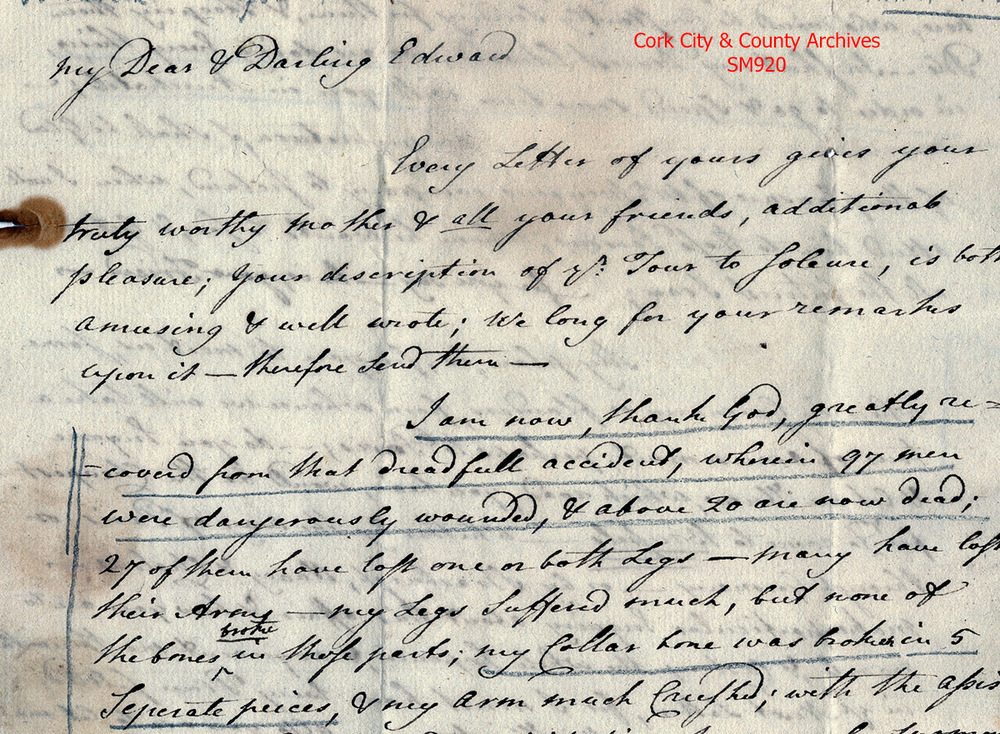 Cork City & County Archives
SM920
My Dear & Darling Edward
Every Letter of yours gives your
truly worthy mother & all your friends, additional
pleasure; Your discription of yr. Tour to Soleure, is both
amusing & well wrote; We long for your remarks
upon it — therefore send them —
I am now, thank God, greatly re=
=coverd from that dreadfull accident, wherein 97 men
were dangerously wounded, & above 20 are now dead;
27 of them have lost one or both Legs — many have lost
their Arms — my Legs Suffered much, but none of
broke
the bones ^ in those parts; my Collar bone was broke in 5
Seperate peices, & my arm much Crushed; with the assis